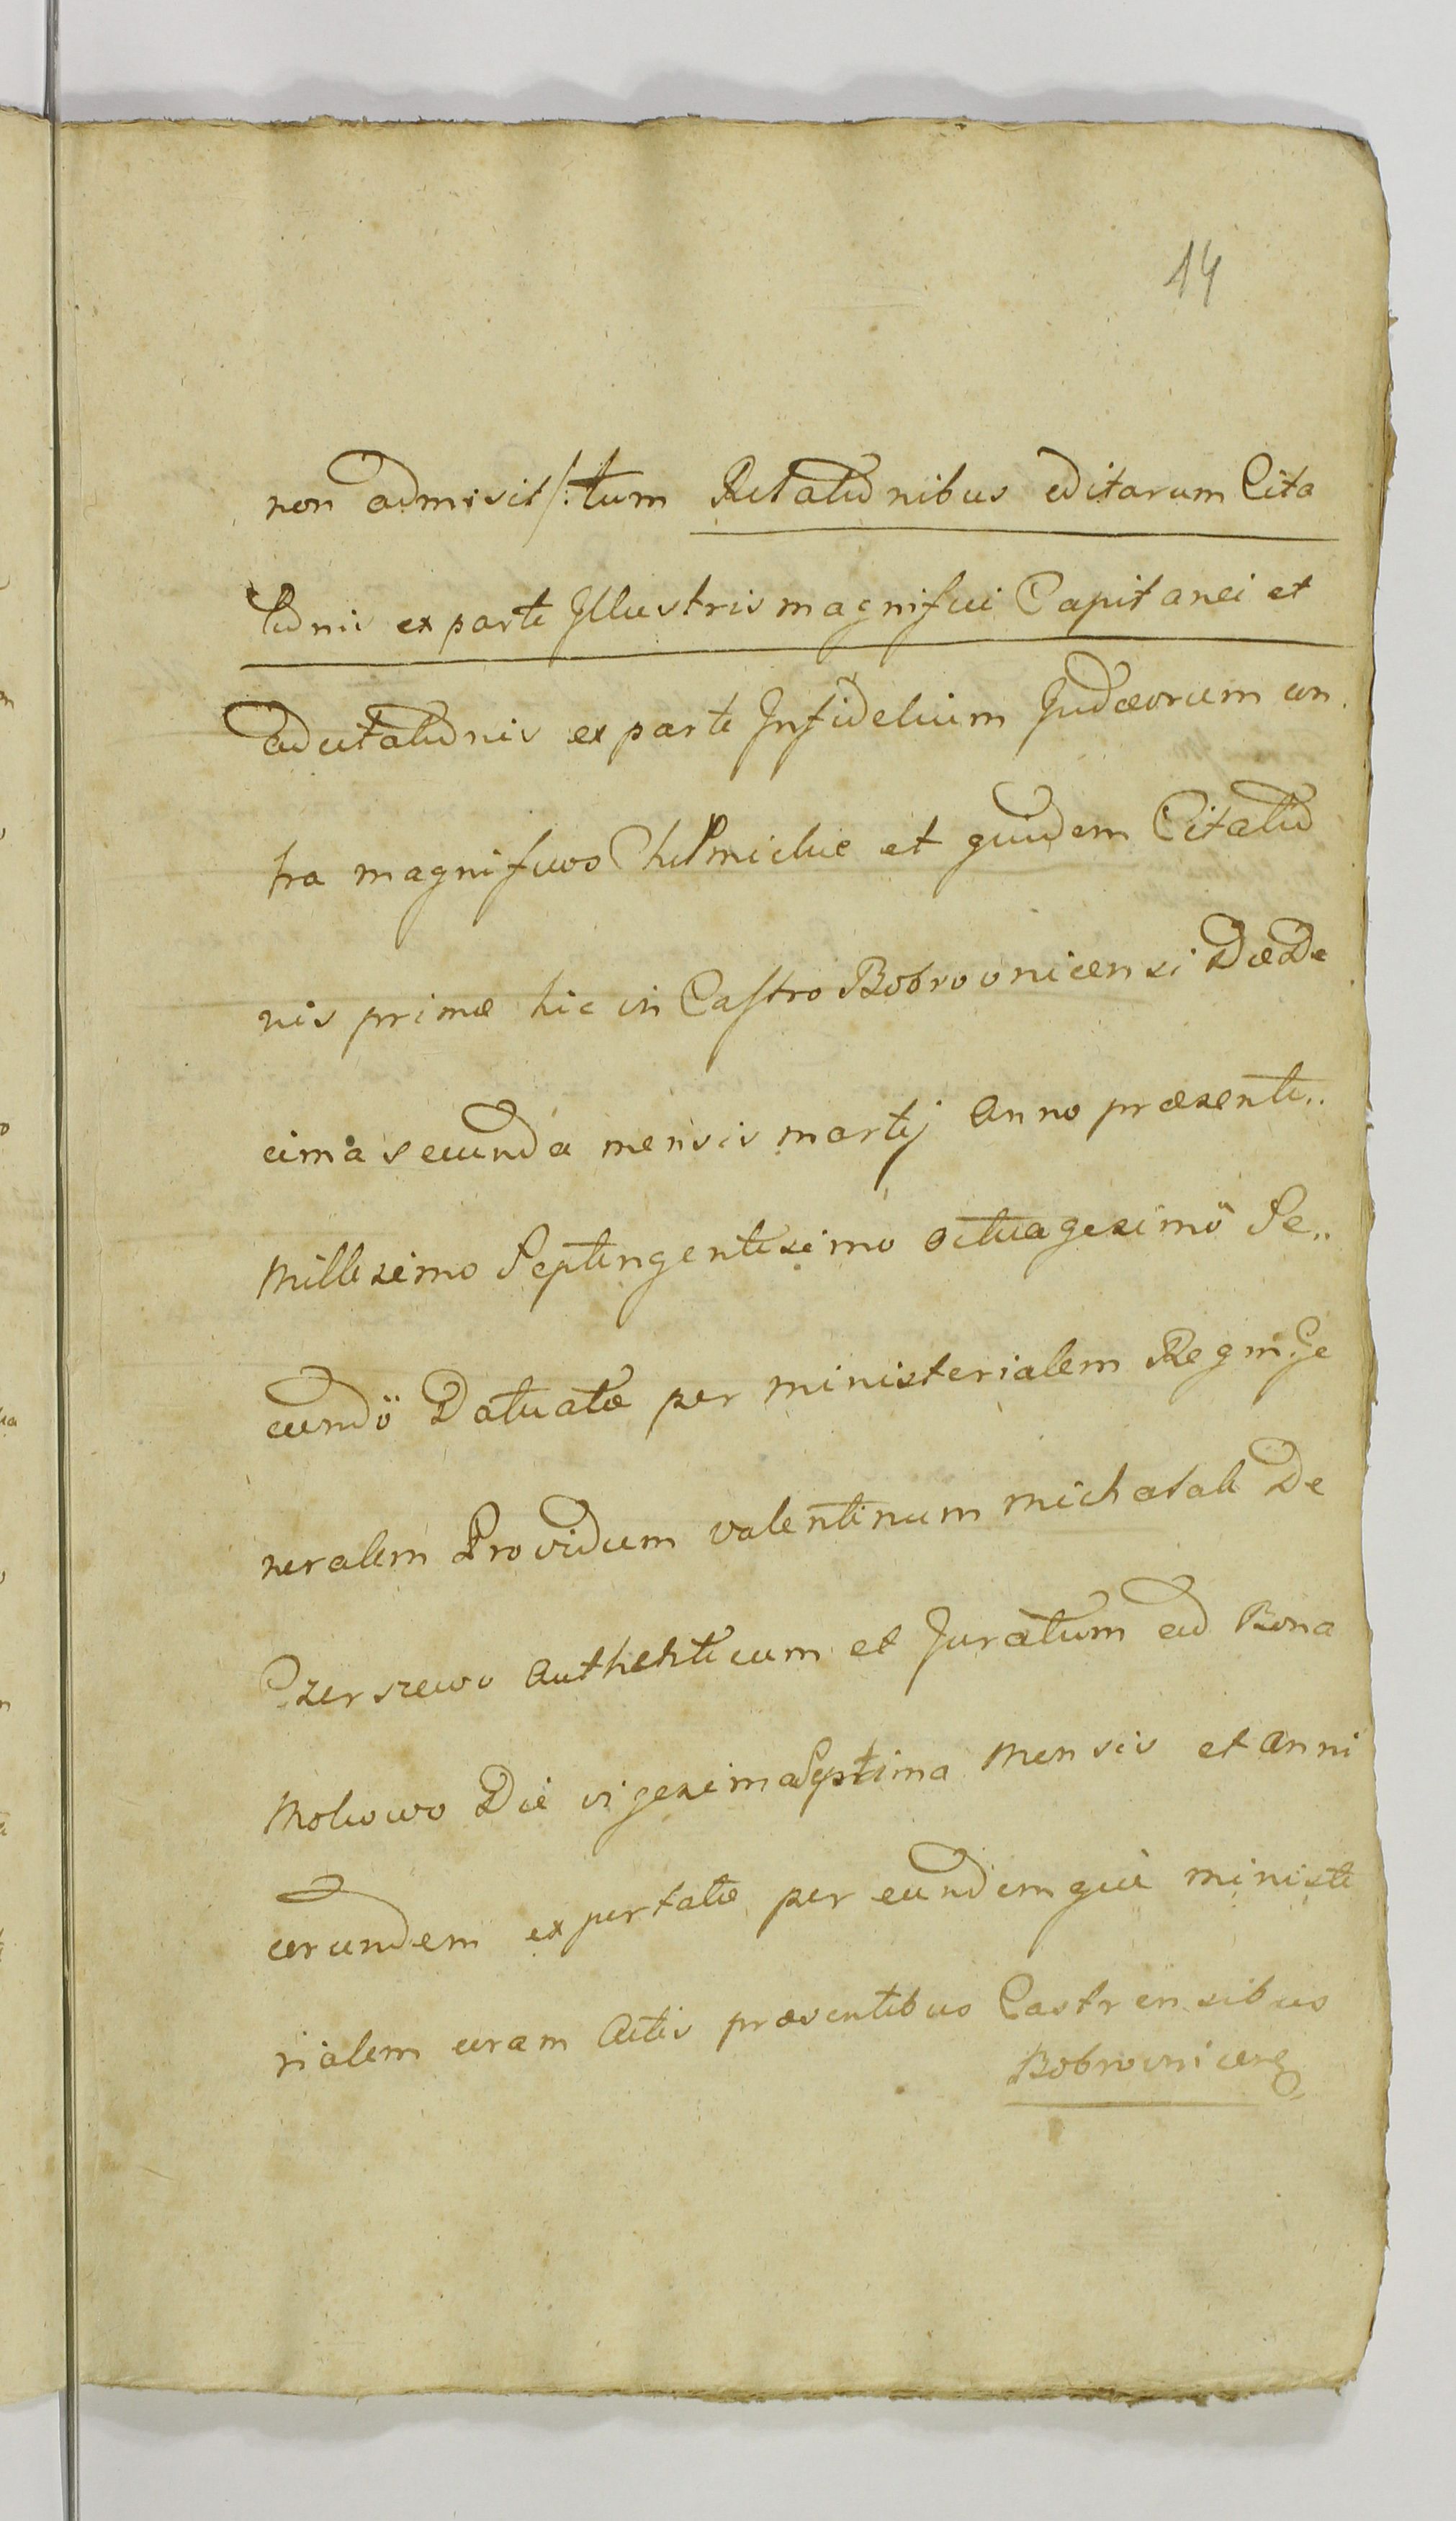 14
non admisit /: tum Relationibus editarum Cita
tionis ex parte Jllustris magnifici Capitanei et
adcitationis ex parte Jnfidelium Judæorum con
tra magnificos Chełmickie et quidem Citatio
nis primæ hic in Castro Bobrovnicensi Die De
cima secunda mensis martij anno præsenti..
Millesimo Septingentesimo octuagesimo Se..
cundo Datuatæ per ministerialem Regni Ge
neralem Providum valentinum Michałak De
Czerszewo authenticum et Juratum ad Bona
Mokowo Die vigesima Septima Mensis et anni
eorundem exportatæ per eundemque ministe
rialem coram Actis præsentibus Castrensibus
Bobrovnicens